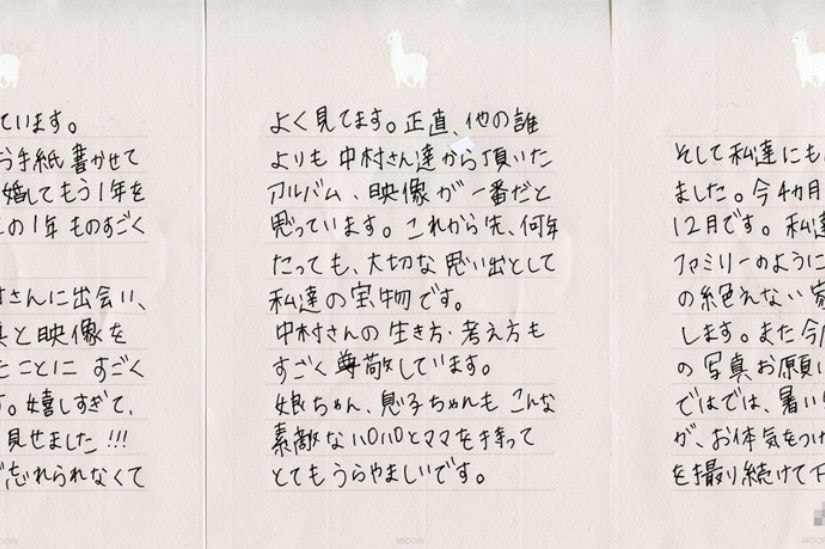 ています。
お手紙書かせて
婚してもう1年を
の1年ものすごく
さんに出会い、
と映像を
ことにすごく
。嬉しすぎて、
見せました!!!
忘れられなくて
よく見てます。正直、他の誰
よりも中村さん達から頂いた
アルバム、映像が一番だと
思っています。これから先、何年
たっても、大切な思い出として
私達の宝物です。
中村さんの生き方・考え方も
すごく尊敬しています。
娘ちゃん、息子ちゃんもこんな
素敵なパパとママを持って
とてもうらやましいです。
MIDORI
そして私達にも
ました。今4カ月
12月です。私達
ファミリーのように
の絶えない家
します。また今
の写真お願い
ではでは、暑い
が、お体気をつけ
を撮り続けて下
MIDORI